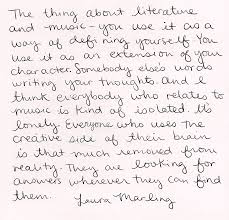 The thing about literature
and -music- you use it as a
way of defining yourself. You
use it as an extension of you
character. Somebody else's words
writing your thoughts. And I
think everybody who relates to
music is kind of isolated. It's
lonely. Everyone who uses the
creative side of their brain
is that much removed from
reality. They are looking for
answers wherever they can find
them. Laura Marling